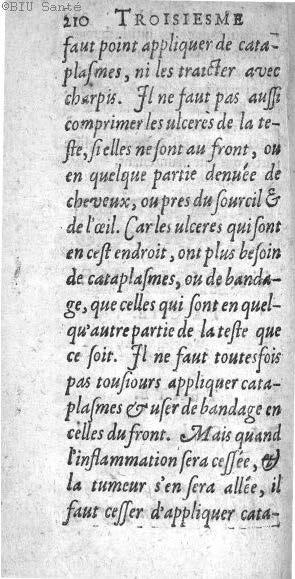 ©BIU Santé
210 TROISIESME
faut point appliquer de cata-
plasmes, ni les traicter avec
charpis. Il ne faut pas aussi
comprimer les ulceres de la te-
ste, si elles ne sont au front, ou
en quelque partie denuée de
cheveux, ou pres du sourcil &
de l'œil. Car les ulceres qui sont
en cest endroit, ont plus besoin
de cataplasmes, ou de banda-
ge, que celles qui sont en quel-
qu'autre partie de la teste que
ce soit. Il ne faut toutesfois
pas tousiours appliquer cata-
plasmes & user de bandage en
celles du front. Mais quand
l'inflammation sera cessée, &
la tumeur s'en sera allée, il
faut cesser d'appliquer cata-